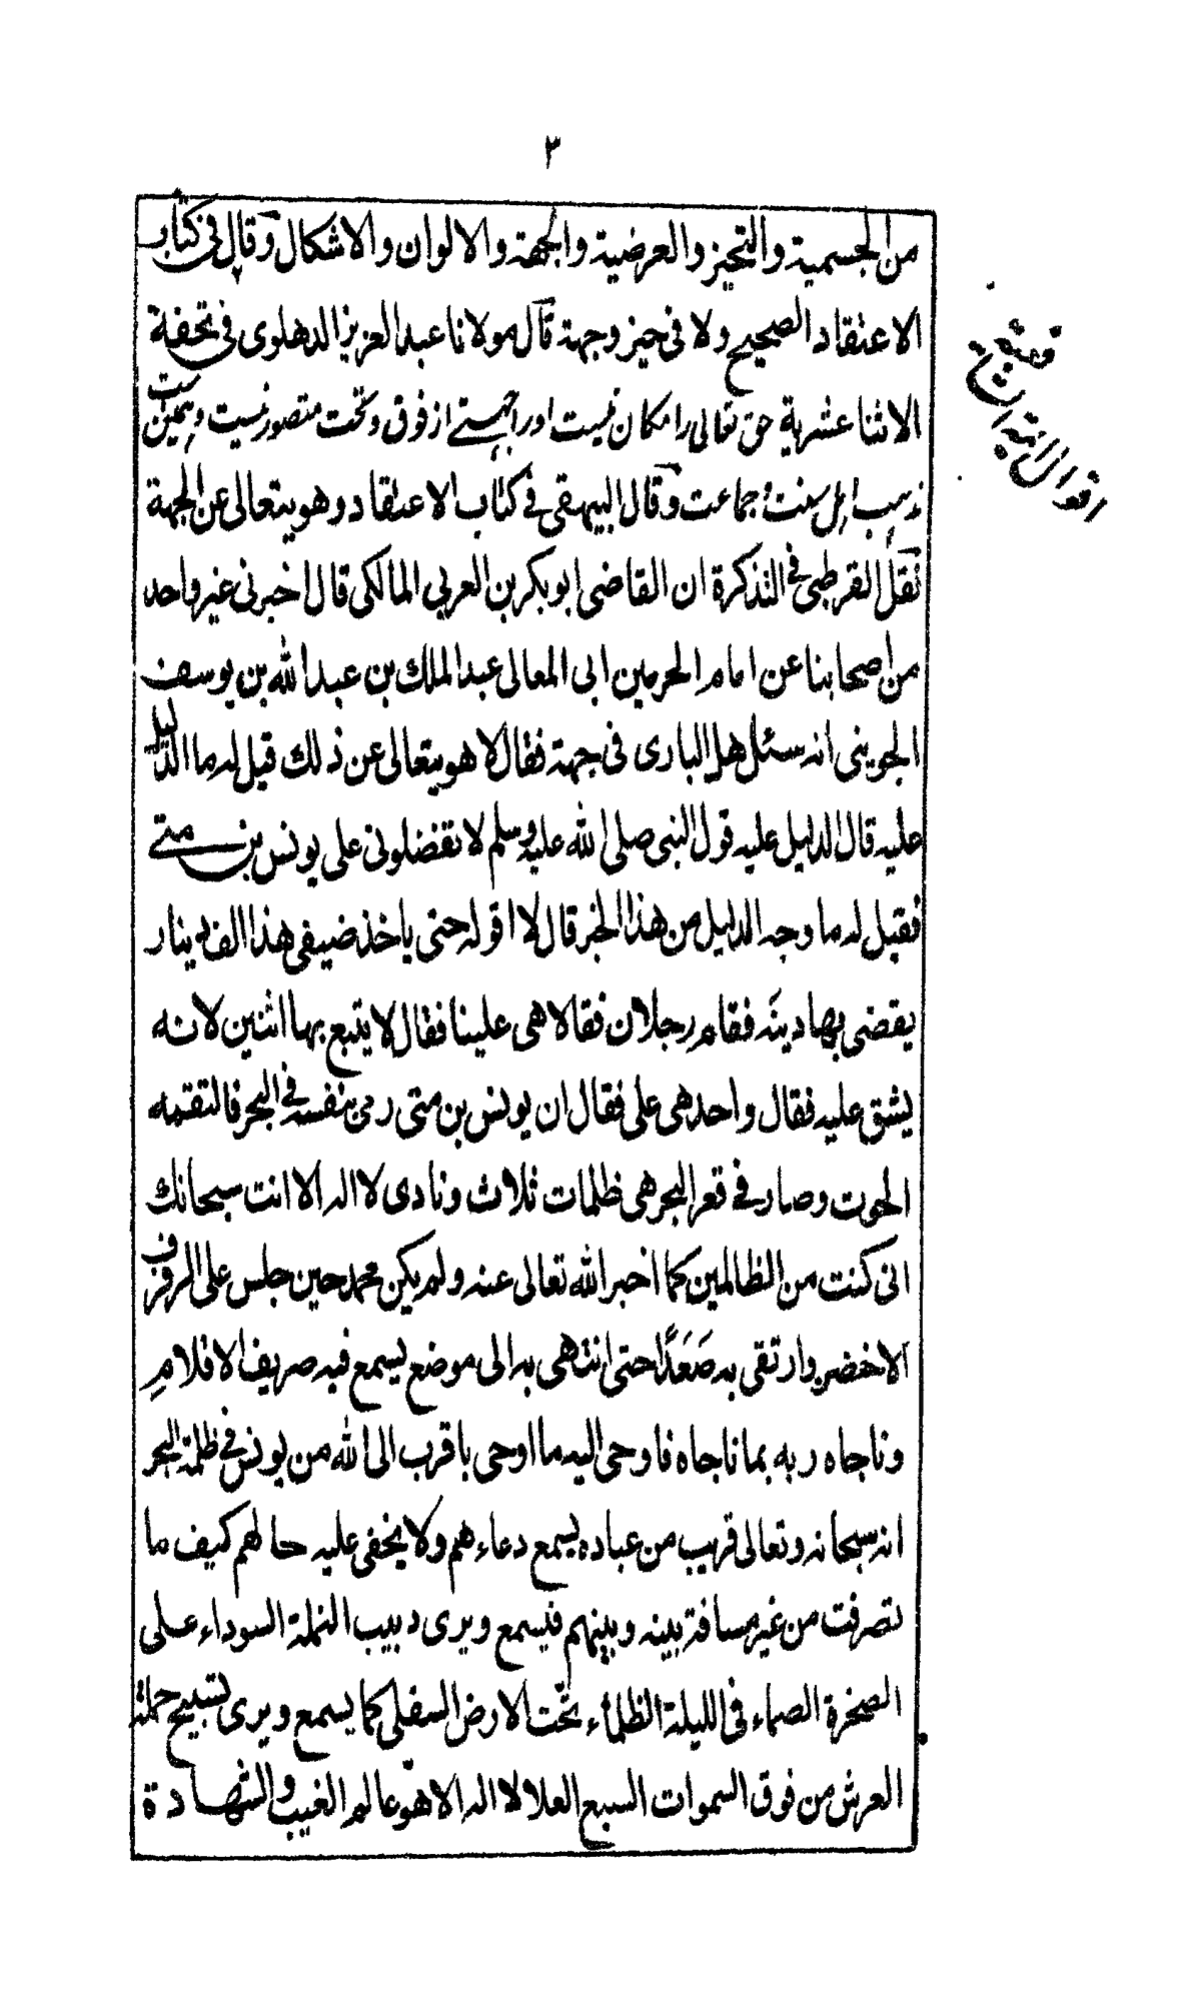 ٣
من الجسمية والتحيز والعرضية والجهة والالوان والاشكال وقال فى كتاب
الاعتقاد الصحيح ولا فى حيز وجهة قال مولانا عبد العزيز الدهلوى فى تحفة
الاثنا عشرية حق تعالى را مكان نيست اورا جهتے از فوق وتحت متصور نيست وہمين ست
مذہب اہل سنت وجماعت وقال البيهقى فى كتاب الاعتقاد وهو يتعالى عن الجهة
نقل القرطبى فى التذكرة ان القاضى ابو بكر بن العربي المالكى قال اخبرنى غير واحد
من اصحابنا عن امام الحرمين ابى المعالى عبد الملك بن عبد الله بن يوسف
الجوينى انه سئل هل البارى فى جهة فقال لا هو يتعالى عن ذلك قيل له ما الدليل
عليه قال الدليل عليه قول النبى صلى الله عليه وسلم لا تفضلونى على يونس بن متے
فقيل له ما وجه الدليل من هذا الخبر قال لا اقوله حتى ياخذ ضيفى هذا الف دينار
يقضى بها دينه فقام رجلان فقالا هى علينا فقال لا يتبع بها اثنين لانه
يشق عليه فقال واحد هى على فقال ان يونس بن متى رمى بنفسه فى البحر فالتقمه
الحوت وصار فى قعر البحر هى ظلمات ثلاث ونادى لا اله الا انت سبحانك
انى كنت من الظالمين كما اخبر الله تعالى عنه ولم يكن محمد حين جلس على الرفرف
الاخضر وارتقى به صَعَدًا حتى انتهى به الى موضع يسمع فيه صريف الاقلام
وناجاه ربه بما ناجاه فاوحى اليه ما اوحى باقرب الى الله من يونس فى ظلمة البحر
انه سبحانه وتعالى قريب من عباده يسمع دعاءهم ولا يخفى عليه حالهم كيف ما
تصرفت من غير مسافة بينه وبينهم فيسمع ويرى دبيب النملة السوداء على
الصخرة الصماء فى الليلة الظلماء تحت الارض السفلى كما يسمع ويرى تسبيح حملة
العرش من فوق السموات السبع العلا لا اله الا هو عالم الغيب والشهادة
اقوال ائمه